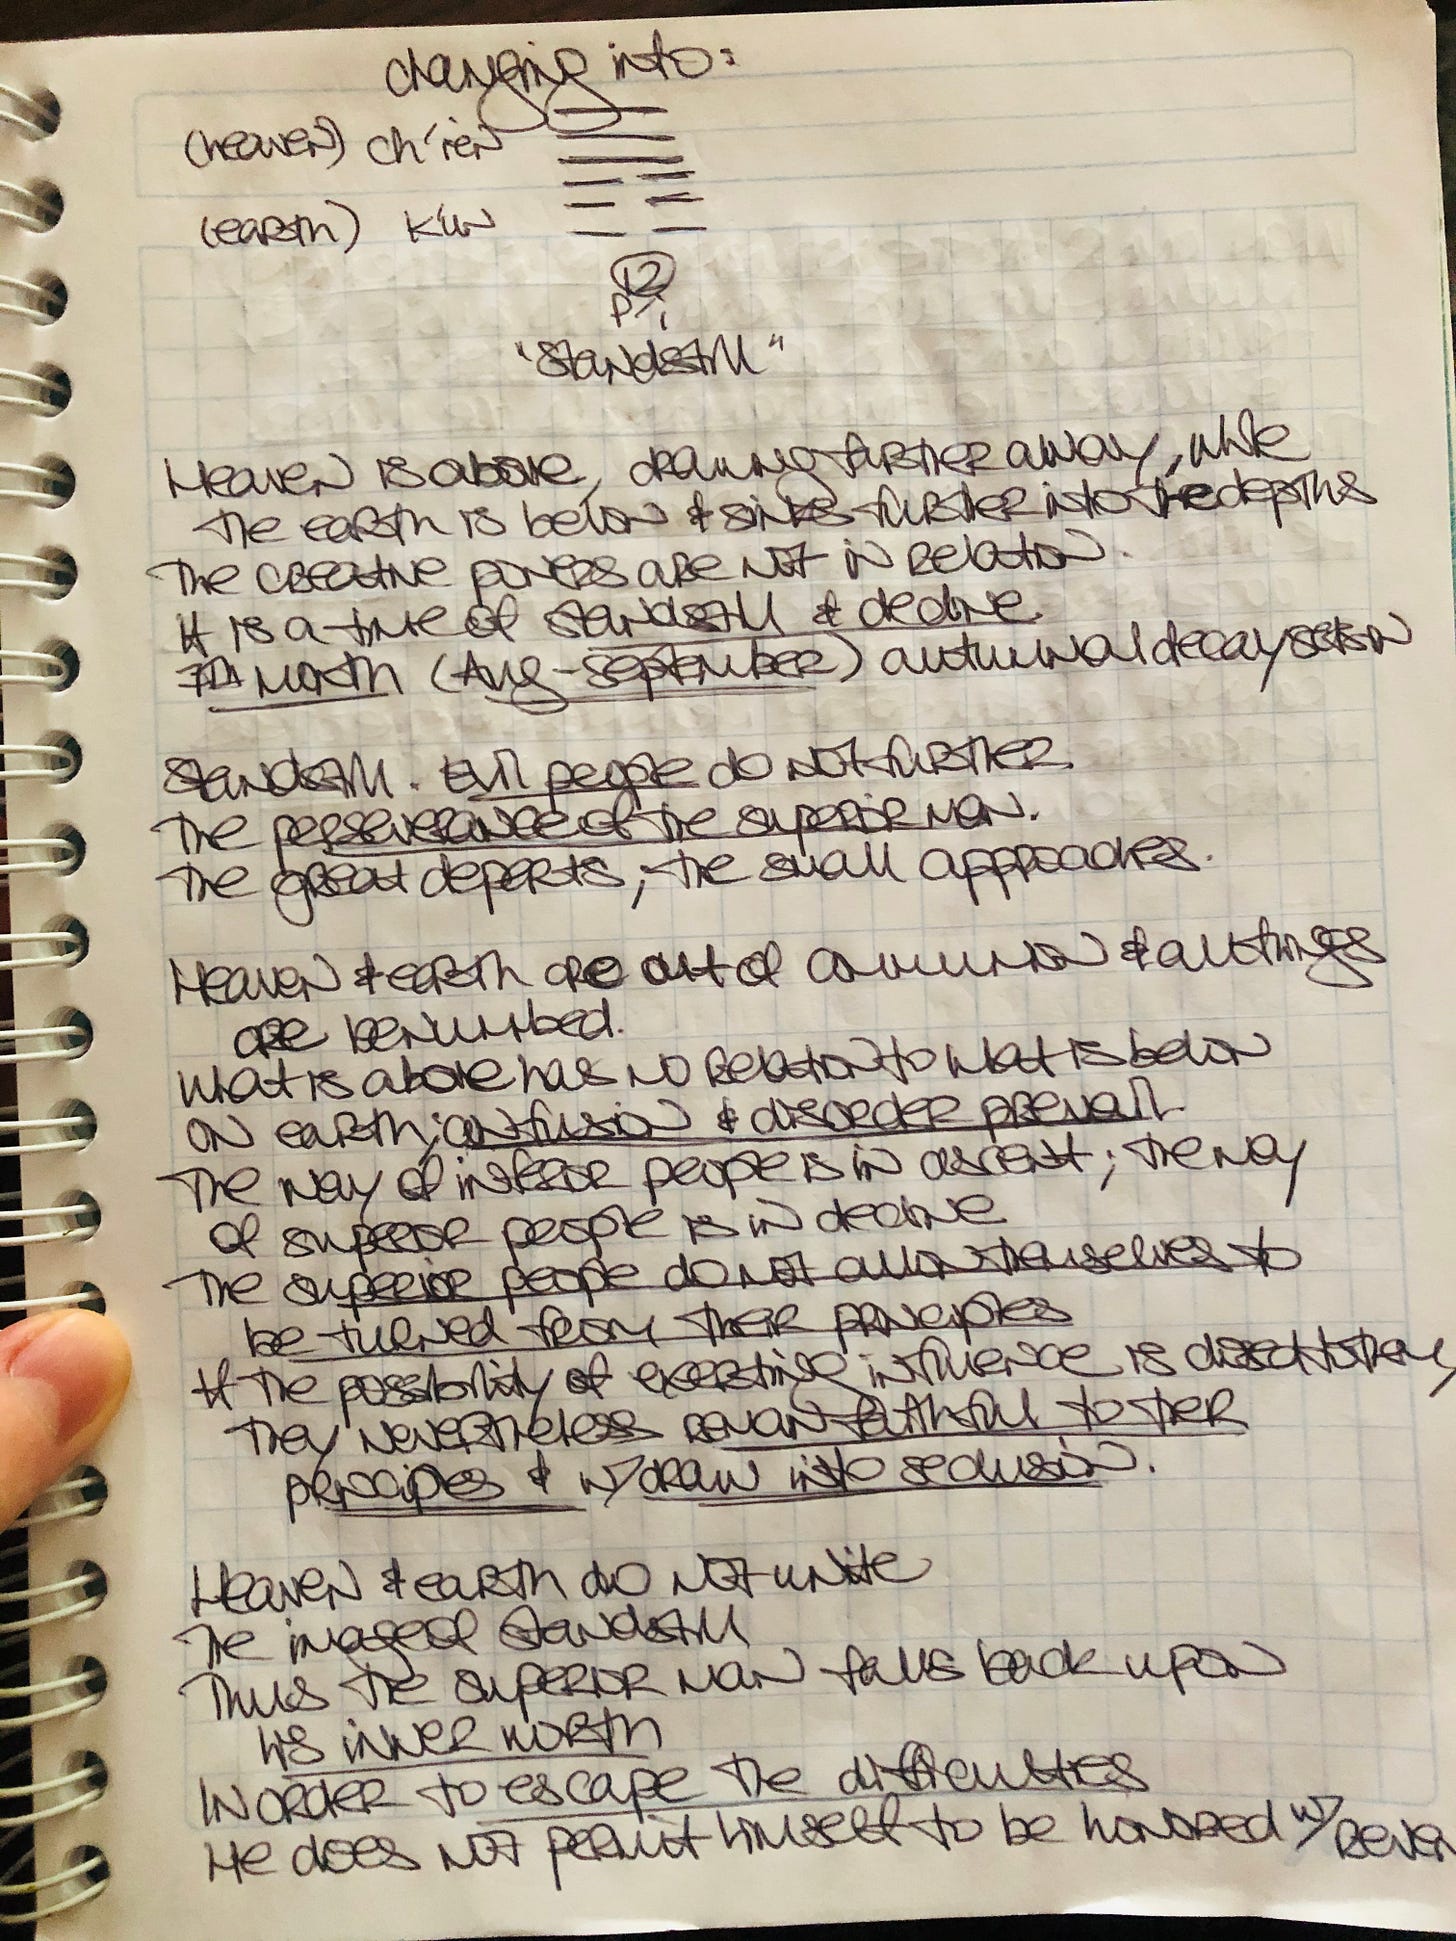 changing into:
(heaven) ch'ien
(earth) K'un
12
P'i
"Standstill"
Heaven is above, drawing further away, while
the earth is below & sinks further into the depths
The creative powers are NOT in relation.
It is a time of standstill & decline.
7th month (Aug-September) autumnal decay sets in
Standstill. Evil people do NOT further
The perseverance of the superior man.
The great departs; the small approaches.
Heaven & earth are out of communion & all things
are benumbed.
What is above has no relation to what is below
on earth; confusion & disorder prevail.
The way of inferior people is in ascent; the way
of superior people is in decline
The superior people do NOT allow themselves to
be turned from their principles
If the possibility of exerting influence is closed to them,
they nevertheless remain faithful to their
principles & w/draw into seclusion.
Heaven & earth do NOT unite
The image of standstill
Thus the superior man falls back upon
his inner worth
In order to escape the difficulties
He does NOT permit himself to be honored w/ reven